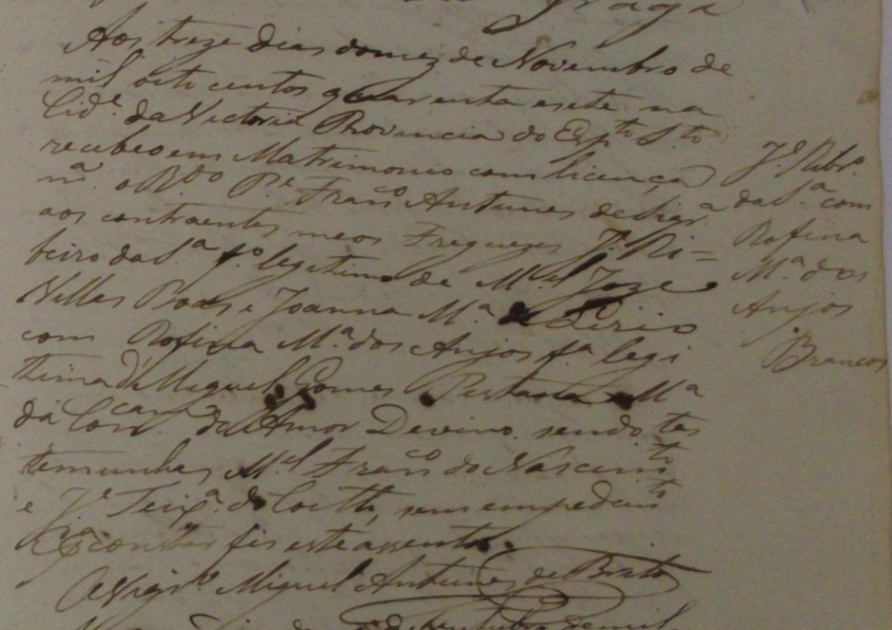 Fraga
Aos treze dias do mez de Novembro de
mil oitocentos quarenta e sete na
Cid.e da Victoria Provincia do Esp.to S.to
recebeo em Matrimonio com licença
m.a o R.do P.e Fran.co Antunes de Siqr.a
aos contraentes meos Freguezes J.e Ri=
beiro da S.a f.o legitimo de M.el Joze
Villas Boas e Joanna M.a
com Rofina M.a dos Anjos f.a legi
thima de Miguel Gomes Pestana M.a
da Con.cam do Amor Devino. sendo tes
temunhas M.el Fran.co do Nascim.to
e J.e Teix.a do Coitto, sem empedim.to
E p.a constar fis este assento.
O Vigr.o Miguel Antunes de Brito
de mil
J.e Rib.ro
da S.a com
Rofina
M.a dos
Anjos
Brancos